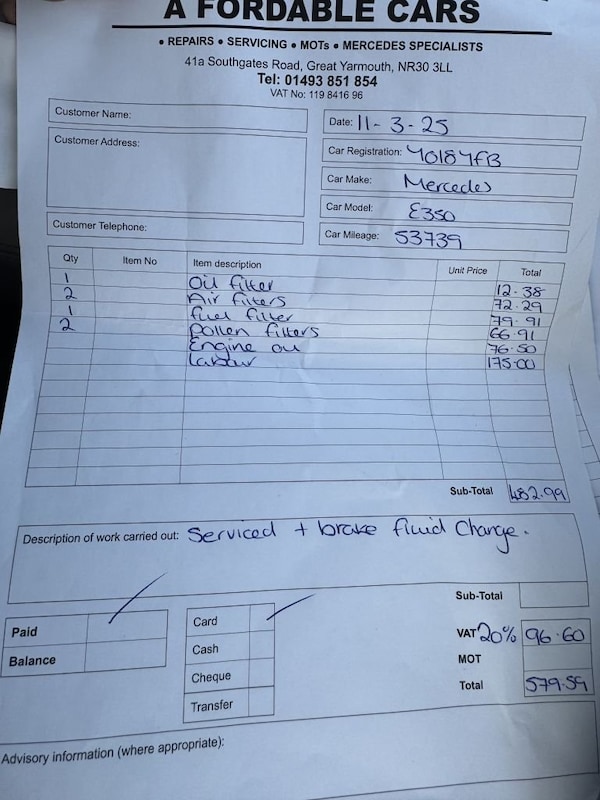 A FORDABLE CARS
• REPAIRS • SERVICING • MOTs • MERCEDES SPECIALISTS
41a Southgates Road, Great Yarmouth, NR30 3LL
Tel: 01493 851 854
VAT No: 119 8416 96
Customer Name:
Customer Address:
Customer Telephone:
Date: 11-3-25
Car Registration: YO18YFB
Car Make: Mercedes
Car Model: E350
Car Mileage: 53739
Qty Item No Item description Unit Price Total
1 Oil filter 12.38
2 Air filters 72.29
1 fuel filter 79.91
2 Pollen filters 66.91
Engine oil 76.50
Labour 175.00
Sub-Total 482.99
Description of work carried out: Serviced + brake fluid change.
Sub-Total
Paid
Balance
Card
Cash
Cheque
Transfer
VAT 20% 96.60
MOT
Total 579.59
Advisory information (where appropriate):